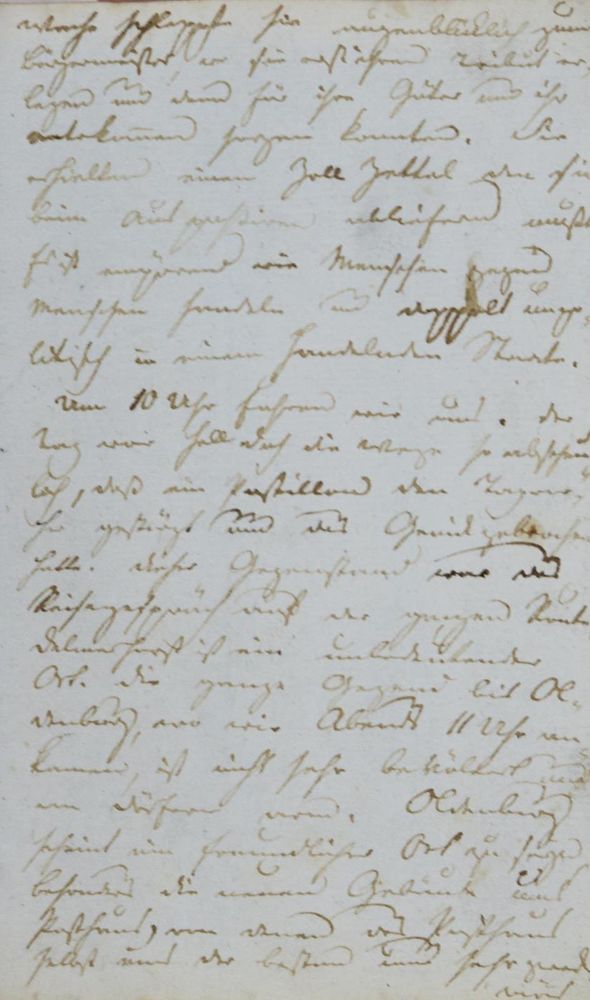 Wache schleppte sie augenblicklich zum
Bürgermeister, wo sie erst ihren Tribut er-
legen und dann für ihre Güter und ihr
entekommen sorgen konnten. Sie
erhielten einen Zoll Zettel den sie
beim auspassiren abliefern mußt
Es ist empörend wie Menschen gegen
Menschen handeln und doppelt unpo-
litisch in einem handelnden Staate.
Um 10 Uhr fuhren wir aus. der
Tag war hell doch die Wege so abscheu
lich, daß ein Postillond den Tag vor-
her gestürzt und das Genick gebrochen
hatte. dieser Gegenstand war das
Reisegespräch auf der ganzen Route
delmenhorst ist ein unbedeutender
Ort. die ganze Gegend bis Ol-
denburg, wo wir Abends 11 Uhr an
kamen, ist nicht sehr bevölkert und
an dörfern arm. Oldenburg
scheint ein freundlicher Ort zu seyn,
besonders die neuen Gebäude ums
Posthaus, von denen das Posthaus
selbst eins der besten und sehr